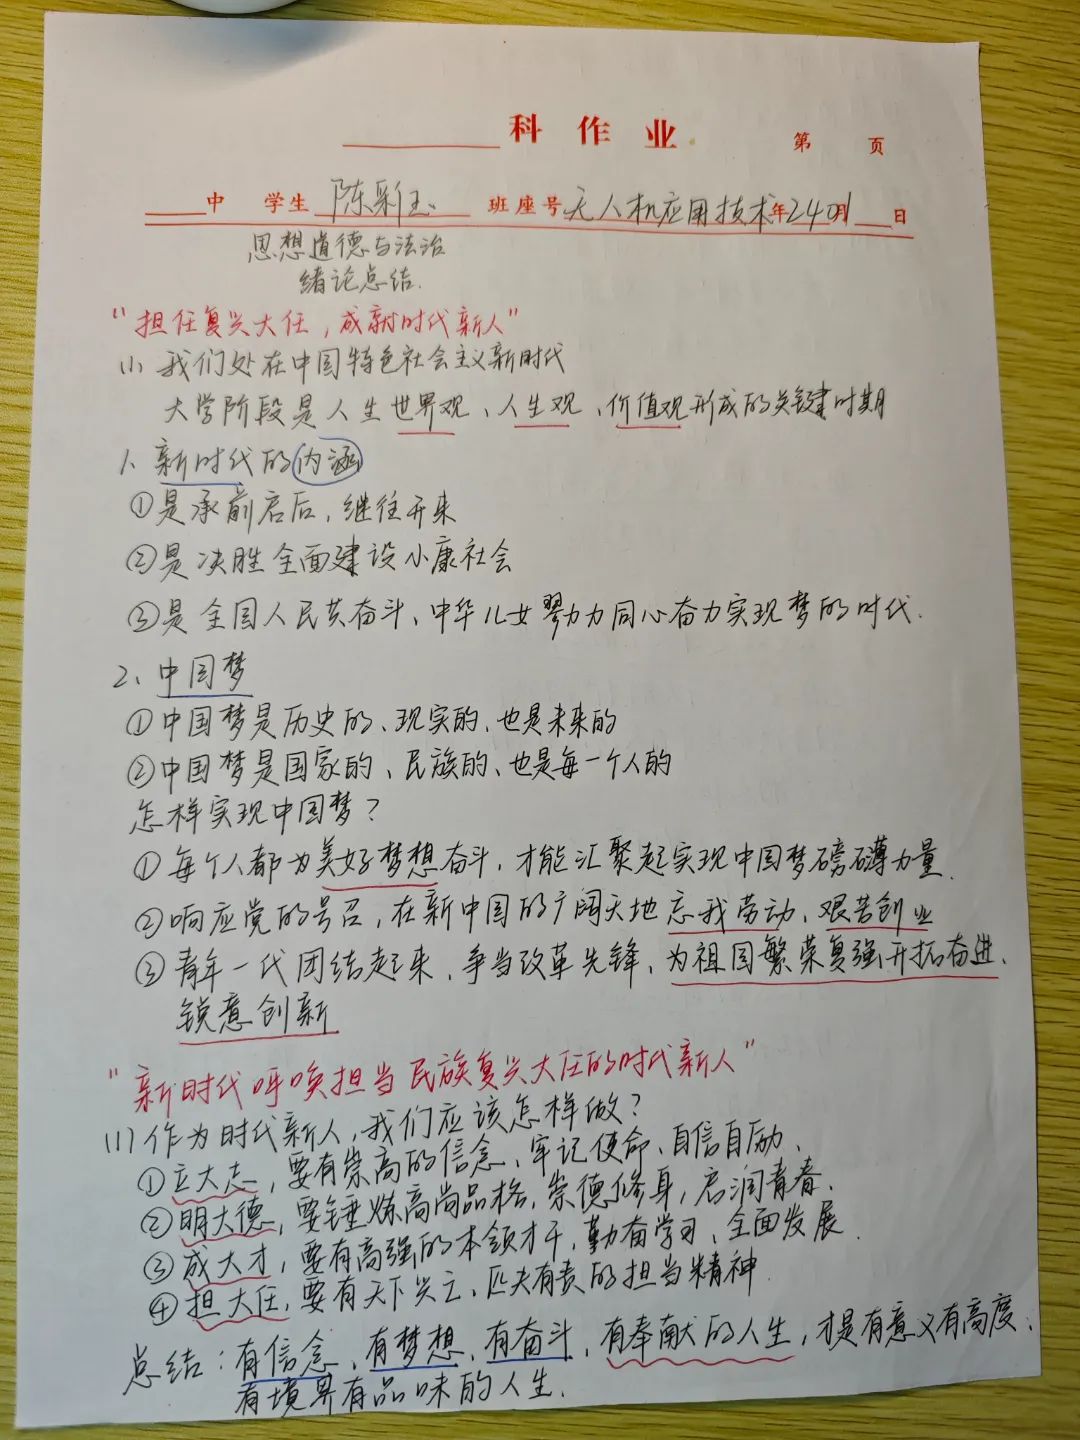 科作业
第 页
中 学生 陈彩玉 班座号 无人机应用技术年2401月 日
思想道德与法治
绪论总结.
"担任复兴大任,成新时代新人"
(1)、我们处在中国特色社会主义新时代
大学阶段是人生世界观、人生观、价值观形成的关键时期
1、新时代的内涵
①是承前启后,继往开来
②是决胜全面建设小康社会
③是全国人民共奋斗、中华儿女勠力同心奋力实现梦的时代.
2、中国梦
①中国梦是历史的、现实的、也是未来的
②中国梦是国家的、民族的、也是每一个人的
怎样实现中国梦?
①每个人都为美好梦想奋斗,才能汇聚起实现中国梦磅礴力量.
②响应党的号召,在新中国的广阔天地忘我劳动、艰苦创业
③青年一代团结起来、争当改革先锋、为祖国繁荣复强开拓奋进、
锐意创新
"新时代呼唤担当民族复兴大任的时代新人"
(1)作为时代新人,我们应该怎样做?
①立大志,要有崇高的信念、牢记使命、自信自励、
②明大德,要锤炼高尚品格,崇德修身,启润青春.
③成大才,要有高强的本领才干,勤奋学习、全面发展.
④担大任,要有天下兴亡、匹夫有责的担当精神
总结:有信念、有梦想、有奋斗、有奉献的人生,才是有意义有高度、
有境界有品味的人生.